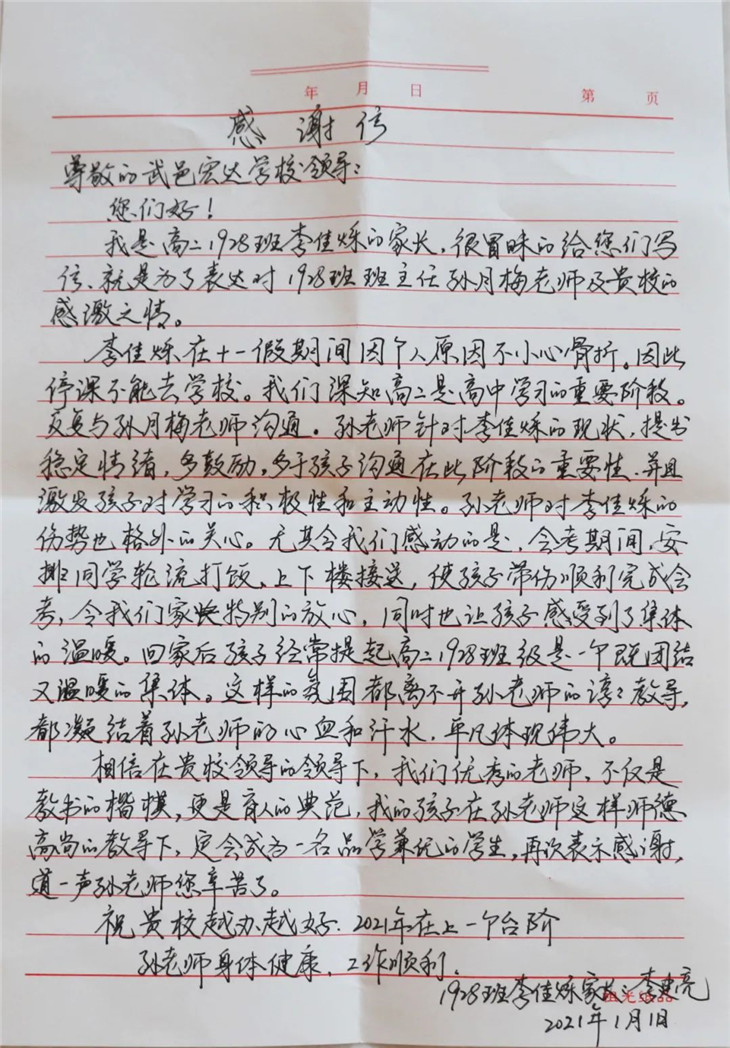 年 月 日
第 页
感谢信
尊敬的武邑宏达学校领导：
您们好！
我是高二1928班李佳烁的家长，很冒昧的给您们写
信、就是为了表达对1928班班主任孙月梅老师及贵校的
感激之情。
李佳烁在十一假期间因个人原因不小心骨折。因此
停课不能去学校。我们深知高二是高中学习的重要阶段。
反复与孙月梅老师沟通。孙老师针对李佳烁的现状，提出
稳定情绪，多鼓励，多于孩子沟通在此阶段的重要性、并且
激发孩子对学习的积极性和主动性。孙老师对李佳烁的
伤势也格外的关心。尤其令我们感动的是，会考期间，安
排同学轮流打饭、上下楼接送，使孩子带伤顺利完成会
考，令我们家长特别的放心，同时也让孩子感受到了集体
的温暖。回家后孩子经常提起高二1928班级是一个既团结
又温暖的集体。这样的氛围都离不开孙老师的谆谆教导，
都凝结着孙老师的心血和汗水，平凡体现伟大。
相信在贵校领导的领导下，我们优秀的老师，不仅是
教书的楷模，更是育人的典范，我的孩子在孙老师这样师德
高尚的教导下，定会成为一名品学兼优的学生，再次表示感谢，
道一声孙老师您辛苦了。
祝贵校越办越好、2021年在上一个台阶
孙老师身体健康、工作顺利，
1928班李佳烁家长：李建亮
2021年1月1日